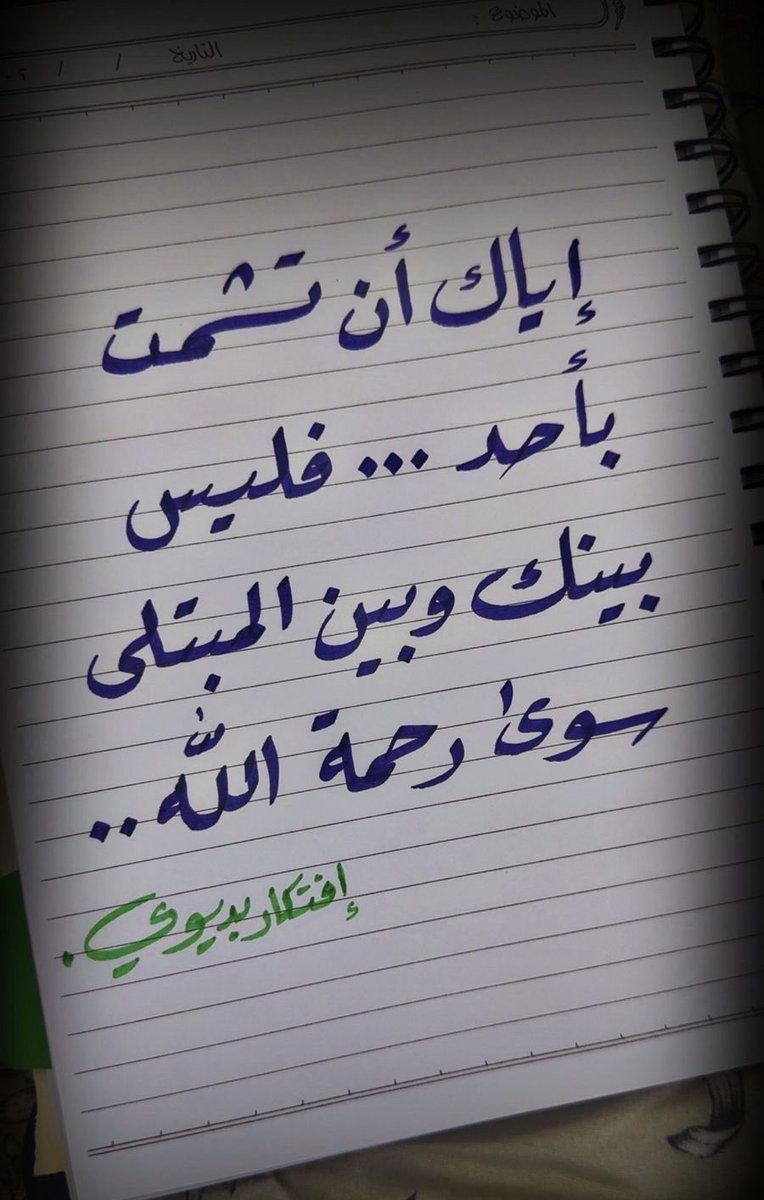 الموضوع :
التاريخ / / ٢٠
إياك أن تشمت
بأحد ... فليس
بينك وبين المبتلى
سوى رحمة الله ..
إفتكار بديوي .